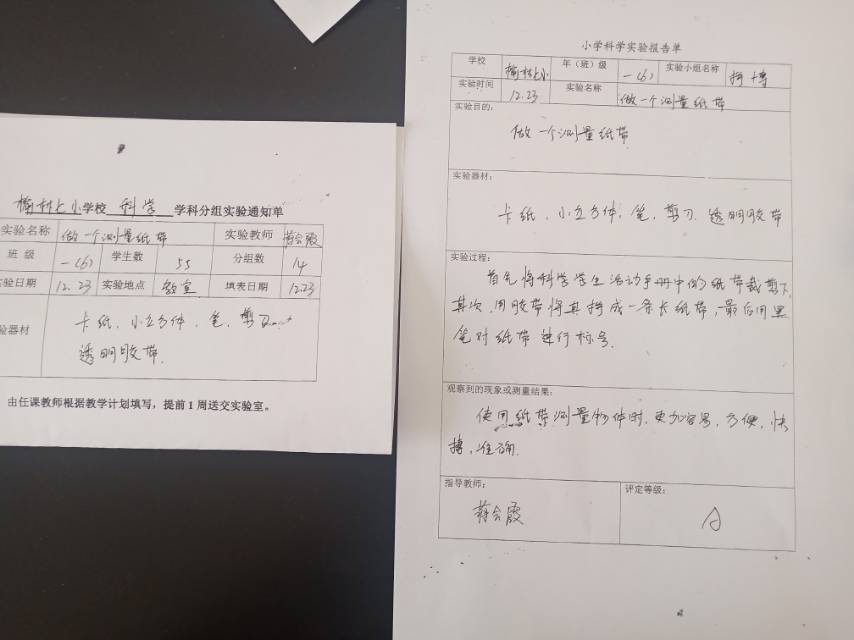 榆林上小学校 科学 学科分组实验通知单
实验名称 做一个测量纸带 实验教师 蒋会霞
班 级 一(6) 学生数 55 分组数 14
验日期 12.23 实验地点 教室 填表日期 12.23
验器材 卡纸、小立方体、笔、剪刀
透明胶带
由任课教师根据教学计划填写，提前1周送交实验室。
小学科学实验报告单
学校 榆林上小 年（班）级 一(6) 实验小组名称
实验时间 12.23 实验名称 做一个测量纸带
实验目的：
做一个测量纸带
实验器材：
卡纸、小立方体、笔、剪刀、透明胶带
实验过程：
首先将科学学生活动手册中的纸带裁剪下
其次,用胶带将其拼成一条长纸带,最后用黑
笔对纸带进行标号.
观察到的现象或测量结果：
使用纸带测量物体时,更加容易,方便,快
捷,准确.
指导教师： 评定等级：
蒋会霞 A